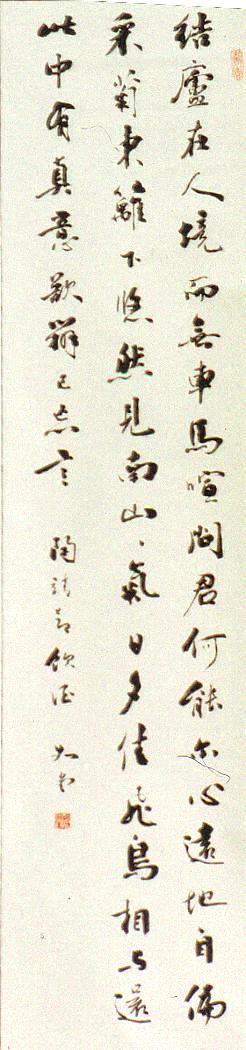 結廬在人境而無車馬喧問君何能尔心遠地自偏
采菊東籬下悠然見南山、氣日夕佳飛鳥相与還
此中有真意欲辨已忘言 陶靖節飲酒